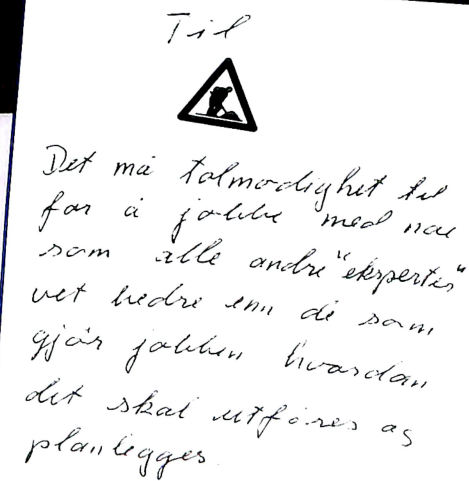 Til
Det må tålmodighet til
for å jobbe med noe
som alle andre "eksperter"
vet bedre enn de som
gjør jobben hvordan
det skal utføres og
planlegges